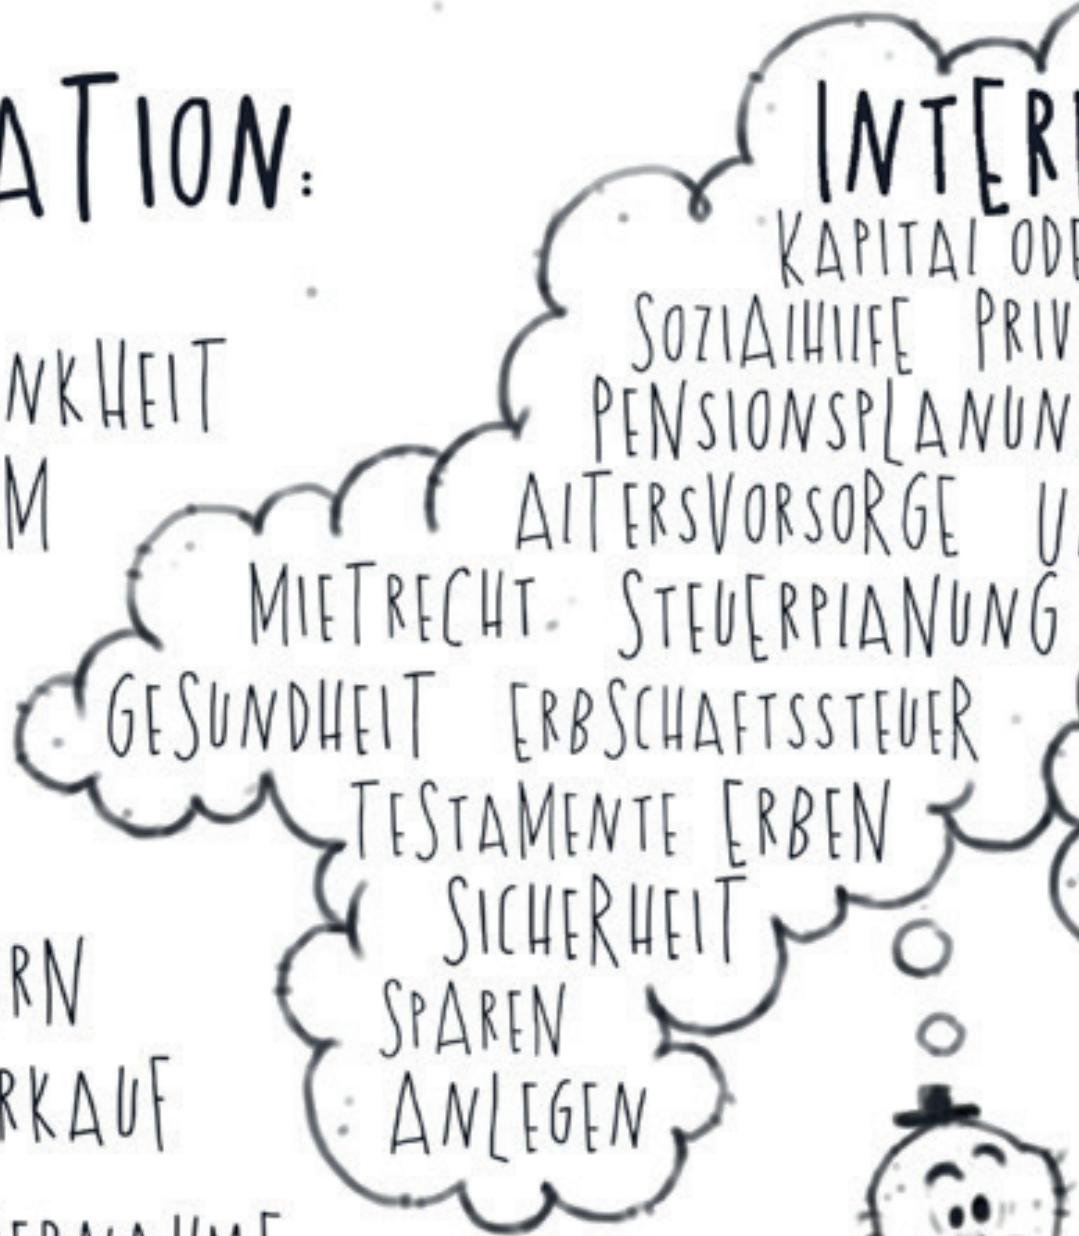 ATION:
NKHEIT
M
RN
RKAUF
INTER
KAPITAL ODE
SOZIALHILFE PRIV
PENSIONSPLANUN
ALTERSVORSORGE U
MIETRECHT STEUERPLANUNG
GESUNDHEIT ERBSCHAFTSSTEUER
TESTAMENTE ERBEN
SICHERHEIT
SPAREN
ANLEGEN